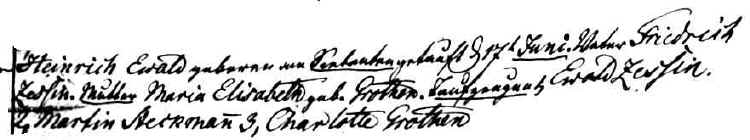 Heinrich Ewald geboren am getauft d 17t Juni. Vater Friedrich
Zessin. Mutter Maria Elisabeth geb. Grothen. Taufzeugen 1, Ewald Zessin.
2, Martin Aeckmañ 3, Charlotte Grothen